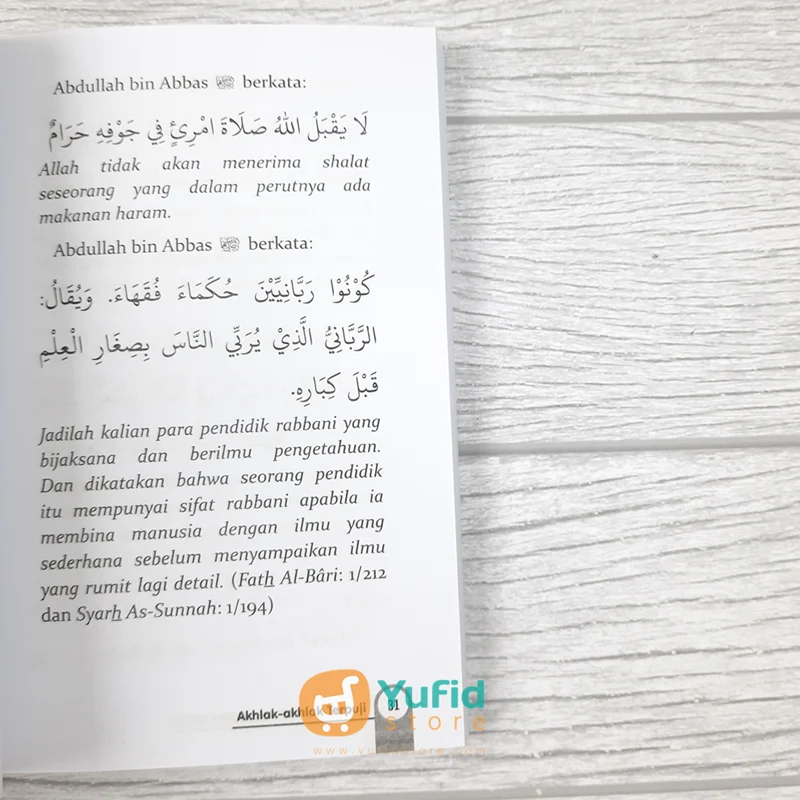 Abdullah bin Abbas ﷺ berkata:
لَا يَقْبَلُ اللهُ صَلَاةَ امْرِئٍ فِي جَوْفِهِ حَرَامٌ
Allah tidak akan menerima shalat
seseorang yang dalam perutnya ada
makanan haram.
Abdullah bin Abbas berkata:
كُوْنُوْا رَبَّانِيِّيْنَ حُكَمَاءَ فُقَهَاءَ. وَيُقَالُ:
الرَّبَّانِيُّ الَّذِيْ يُرَبِّي النَّاسَ بِصِغَارِ الْعِلْمِ
قَبْلَ كِبَارِهِ.
Jadilah kalian para pendidik rabbani yang
bijaksana dan berilmu pengetahuan.
Dan dikatakan bahwa seorang pendidik
itu mempunyai sifat rabbani apabila ia
membina manusia dengan ilmu yang
sederhana sebelum menyampaikan ilmu
yang rumit lagi detail. (Fath Al-Bâri: 1/212
dan Syarh As-Sunnah: 1/194)
Akhlak-akhlak Terpuji 31
Yufid
store
www.yufidstore.com